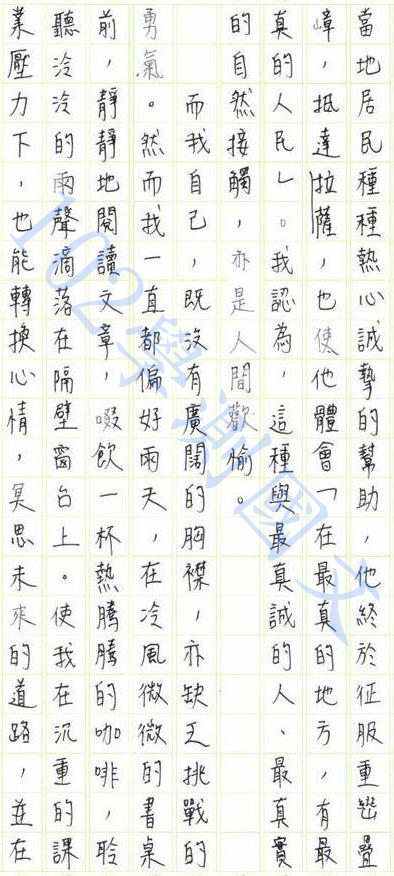 當地居民種種熱心誠摯的幫助，他終於征服重巒疊
嶂，抵達拉薩，也使他體會「在最真的地方，有最
真的人民」。我認為，這種與最真誠的人、最真實
的自然接觸，亦是人間歡愉。
而我自己，既沒有廣闊的胸襟，亦缺乏挑戰的
勇氣。然而我一直都偏好雨天，在冷風微微的書桌
前，靜靜地閱讀文章，啜飲一杯熱騰騰的咖啡，聆
聽冷冷的雨聲滴落在隔壁窗台上。使我在沉重的課
業壓力下，也能轉換心情，冥思未來的道路，並在
102學測國文